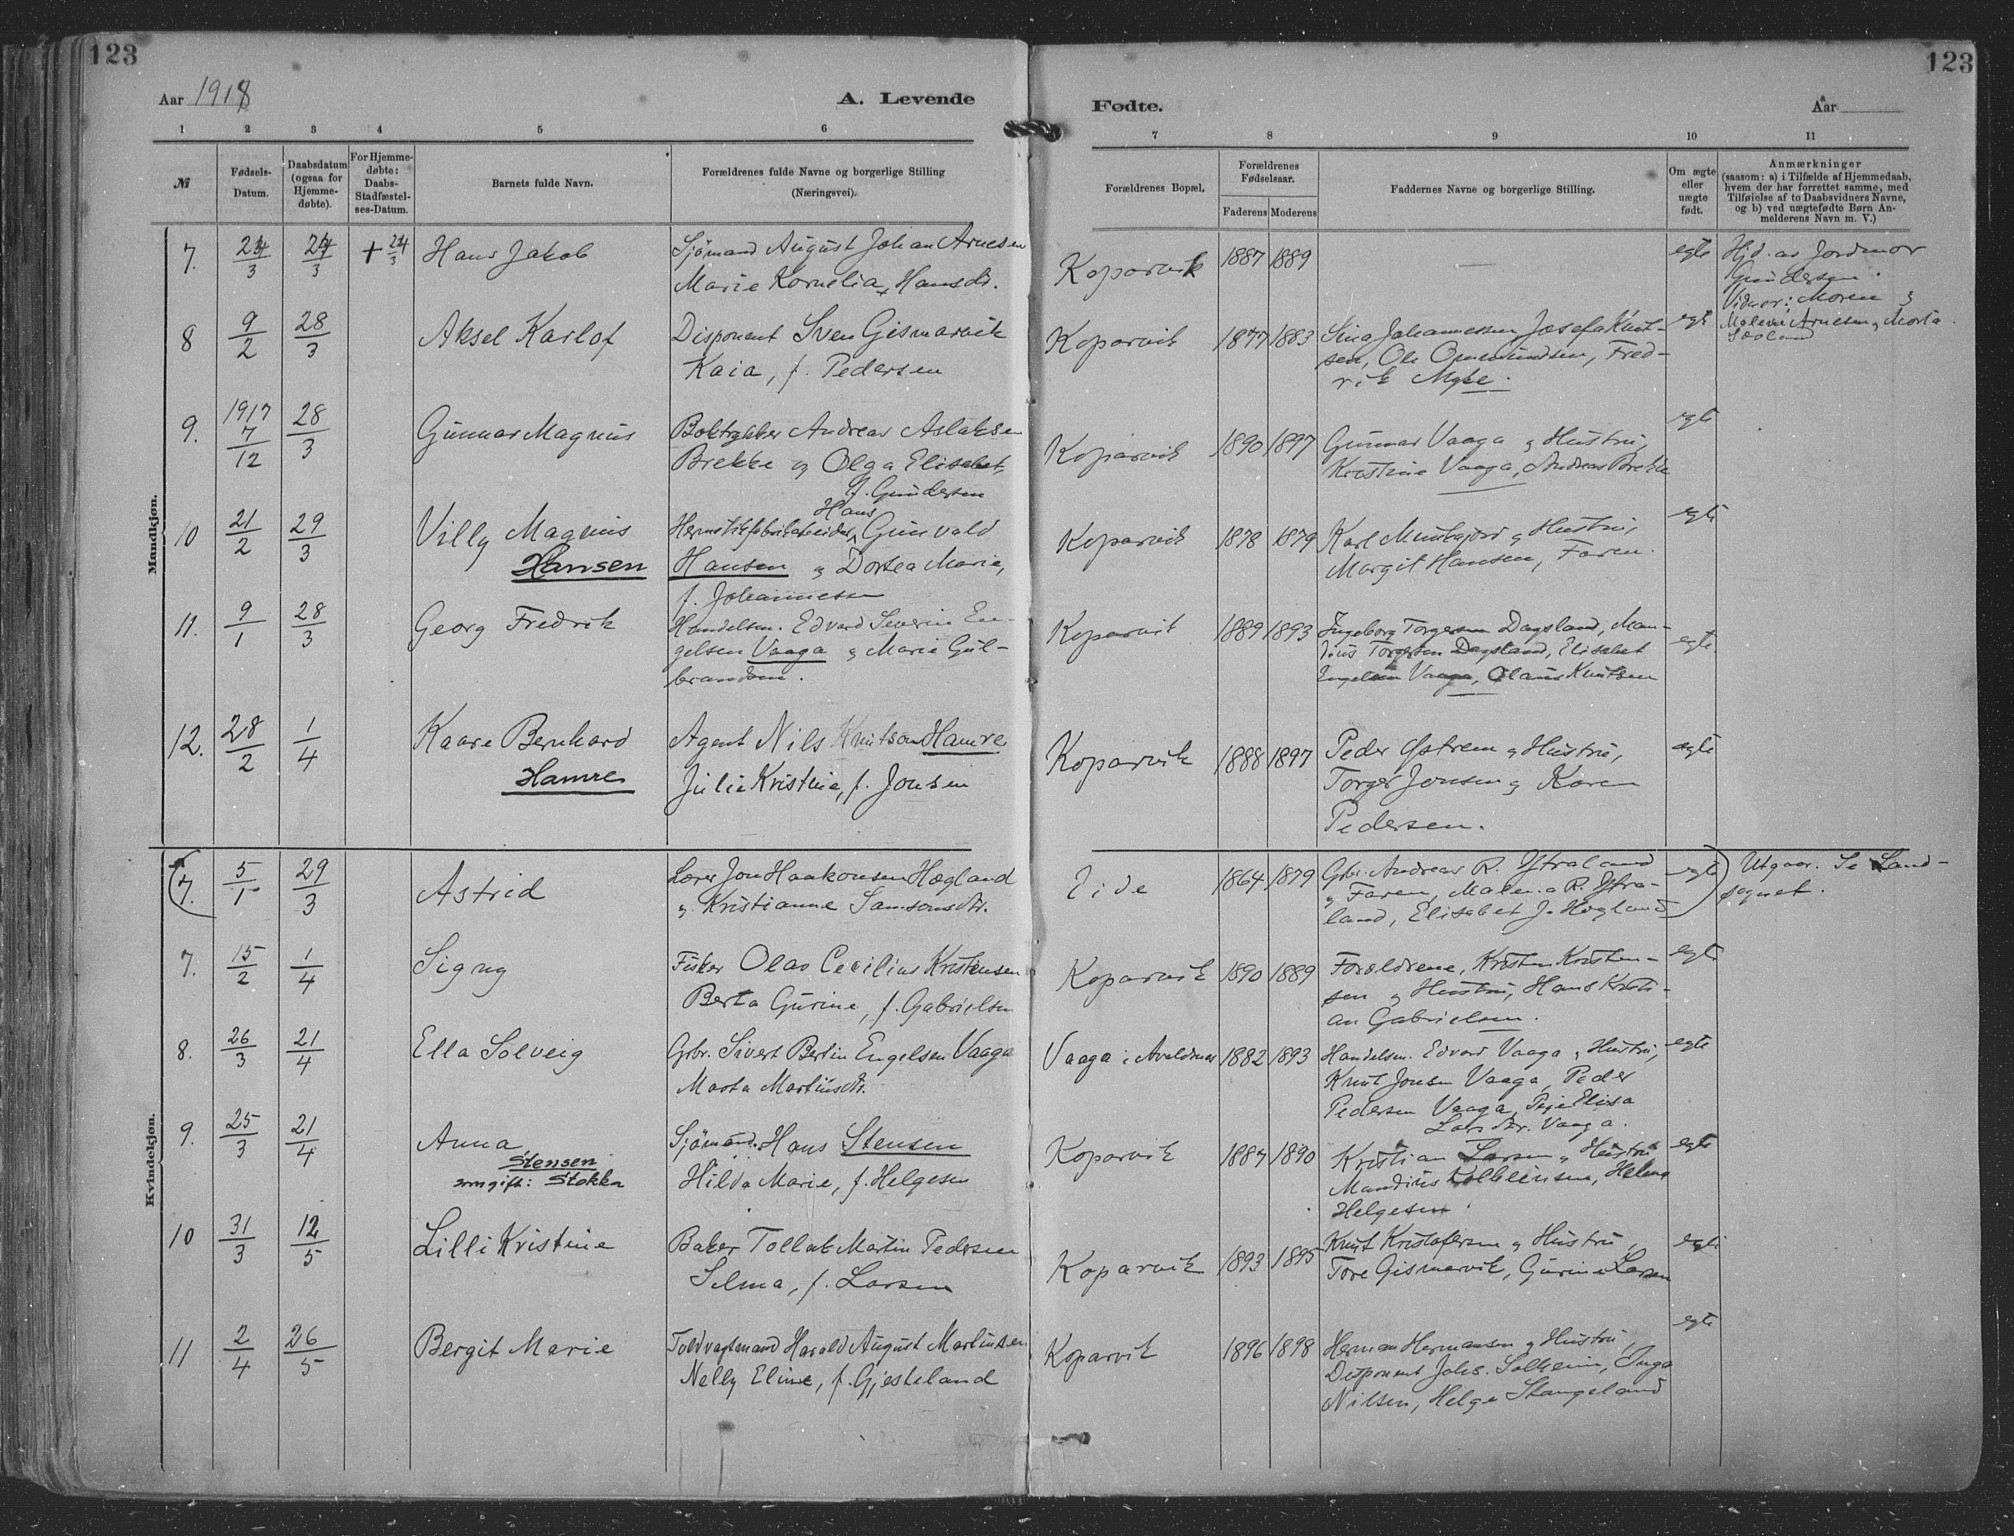 123
123
Aar 1918
A. Levende
Fødte.
Aar
1 2 3 4 5 6 7 8 9 10 11
№
Fødsels-
Datum.
Daabsdatum
(ogsaa for
Hjemme-
døbte).
For Hjemme-
døbte:
Daabs-
Stadfæstel-
ses-Datum.
Barnets fulde Navn.
Forældrenes fulde Navne og borgerlige Stilling
(Næringsvei).
Forældrenes Bopæl.
Forældrenes
Fødselsaar.
Faderens Moderens
Faddernes Navne og borgerlige Stilling.
Om ægte
eller
uægte
født.
Anmærkninger
(saasom: a) i Tilfælde af Hjemmedaab,
hvem der har forrettet samme, med
Tilføielse af to Daabsvidners Navne,
og b) ved uægtefødte Børn An-
melderens Navn m. V.)
Mandkjøn.
7. 24/3 24/3 + 24/3 Hans Jakob
Sjømand August Johan Arnesen
Marie Kornelia, Hansdr.
Koparvik 1887 1889 — egte
Hjd. av Jordmor
Gundersen.
Vidner: Moren &
Malene Arnesen, Marta
8 9/2 28/3 Aksel Karlof
Disponent Sven Gismarvik
Kaia, f. Pedersen
Koparvik 1877 1883
Sina Johannessen, Josefa Knut-
sen, Ole Ommundsen, Fred-
rik Myhe.
egte
9. 1917 7/12 28/3 Gunnar Magnus
Boktrykker Andreas Aslaksen
Brekke og Olga Elisabet,
f. Gundersen
Koparvik 1890 1897
Gunnar Vaaga og Hustru,
Kristine Vaaga, Andreas Brekke
egte
10 21/2 29/3 Villy Magnus
Hansen
Hans
Hermetikfabrikarbeider, Gunvald
Hansen og Dortea Marie,
f. Johannesen
Koparvik 1878 1879
Karl Munkejord og Hustru,
Margit Hansen, Faren.
egte
11. 9/1 28/3 Georg Fredrik
Handelsm. Edvard Severin En-
gelsen Vaaga og Marie Gul-
brandsen.
Koparvik 1889 1893
Ingeborg Torgersen Dagsland, Man-
dius Torgersen Dagsland, Elisabet
Engelsen Vaaga, Olaus Knutsen
egte.
12. 28/2 1/4 Kaare Bernhard
Hamre
Agent Nils Knutson Hamre
Julie Kristine, f. Jonsen
Koparvik 1888 1897
Peder Østrem og Hustru,
Torger Jonsen og Karen
Pedersen.
egte
Kvindekjøn.
(7. 5/1 29/3 Astrid
Lærer Jon Haakonsen Høgland
og Kristianne Samsonsdtr.
Eide 1864 1879
Gbr. Andreas R. Ystraland
og Faren, Malena R. Ystra-
land, Elisabet J. Høgland
egte)
Utgaar. Se Land-
sognet.
7. 15/2 1/4 Signy
Fisker Olav Cecilius Kristensen
Berta Gurine, f. Gabrielsen
Koparvik 1890 1889
Forældrene, Kristen Kristen-
sen og Hustru, Hans Kristi-
an Gabrielsen.
egte
8. 26/3 21/4 Ella Solveig
Gbr. Sivert Bertin Engelsen Vaaga
Marta Martinsdtr.
Vaaga i Avaldsnes 1882 1893
Handelsm. Edvard Vaaga og Hustru,
Knut Jonsen Vaaga, Peder
Pedersen Vaaga, Elisa
Larsdtr. Vaaga.
egte
9. 25/3 21/4 Anna
Stensen
som gift: Stokka
Sjømand Hans Stensen
Hilda Marie, f. Helgesen
Koparvik 1887 1890
Kristian Larsen og Hustru
Mandius Kolbeinsen, Helena
Helgesen.
egte
10 31/3 12/5 Lilli Kristine
Baker Tollak Martin Pedersen
Selma, f. Larsen
Koparvik 1893 1895
Knut Kristofersen og Hustru,
Tore Gismarvik, Gurine Larsen
egte
11 2/4 26/5 Bergit Marie
Toldvagtmand Harald August Martinsen
Nelly Eline, f. Gjesteland
Koparvik 1896 1898
Herman Hermansen og Hustru,
Disponent Johs. Solheim, Inga
Nilsen, Helge Stangeland
egte